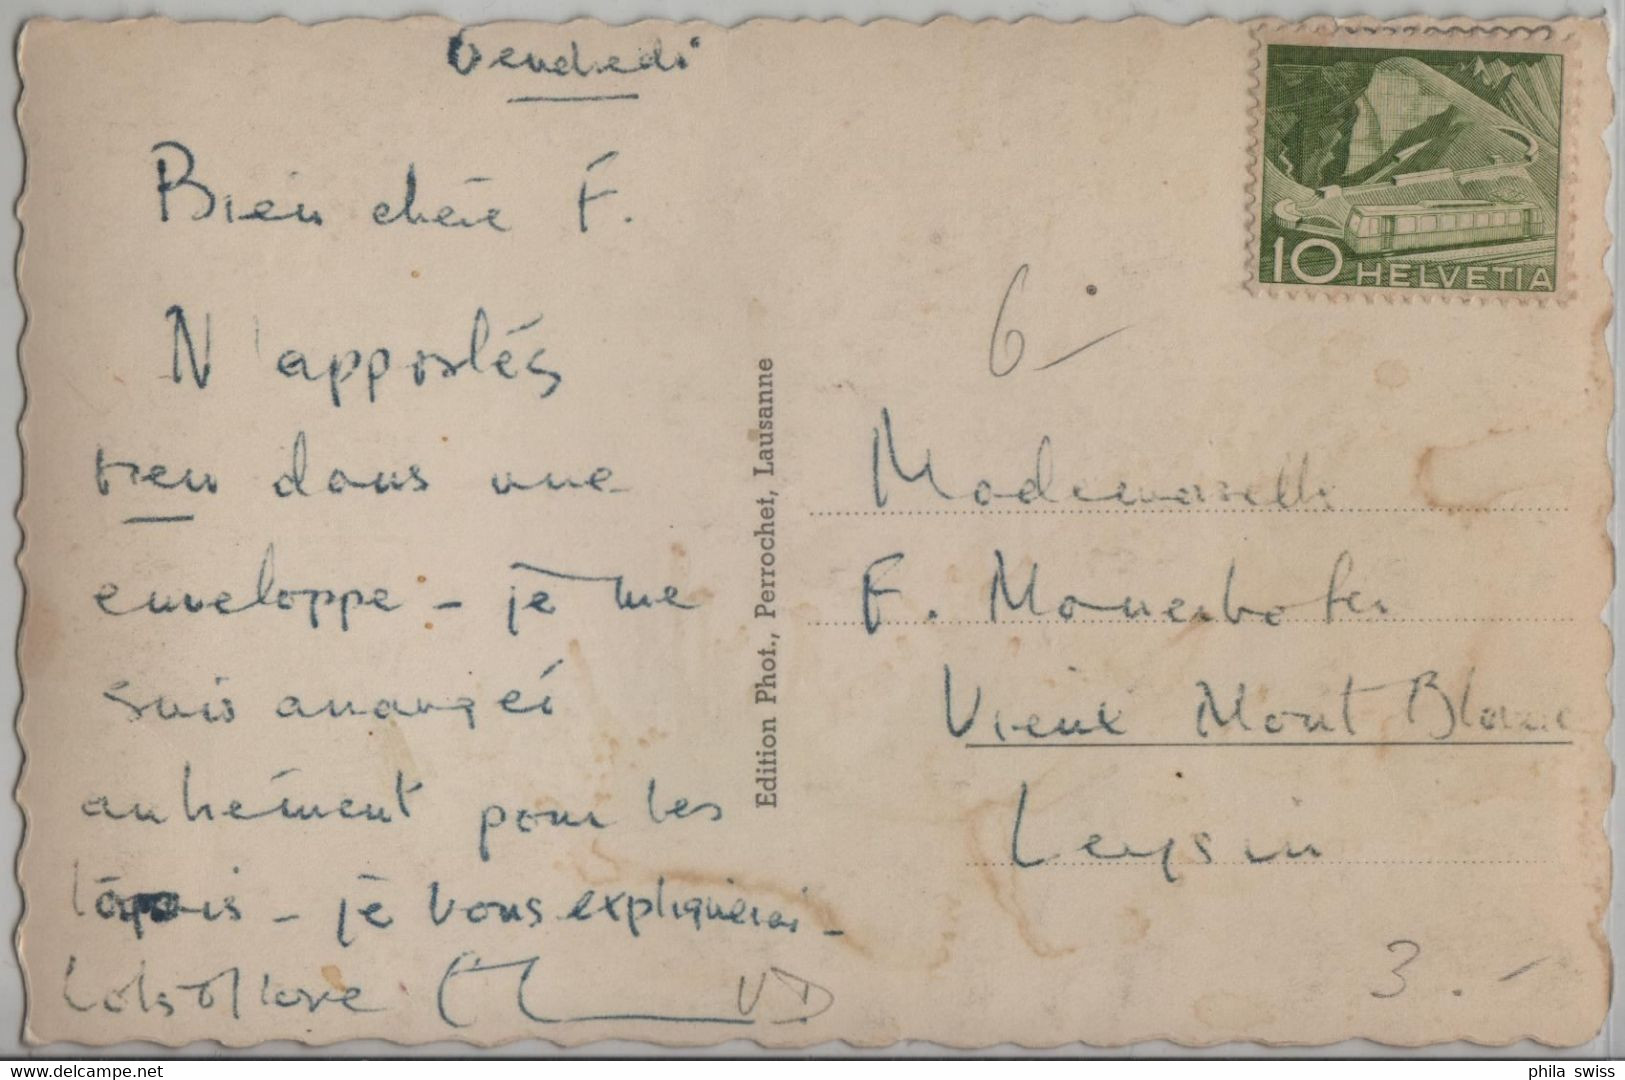 Vendredi
Bien chère F.
N'apportés
rien dans une
enveloppe - je me
suis arrangéi
autrement pour les
tapis - je vous expliquerai -
Lots of love
VD
Edition Phot., Perrochet, Lausanne
10 HELVETIA
6.-
Mademoiselle
F.
Vieux Mont Blanc
Leysin
3.-
delcampe.net
phila swiss